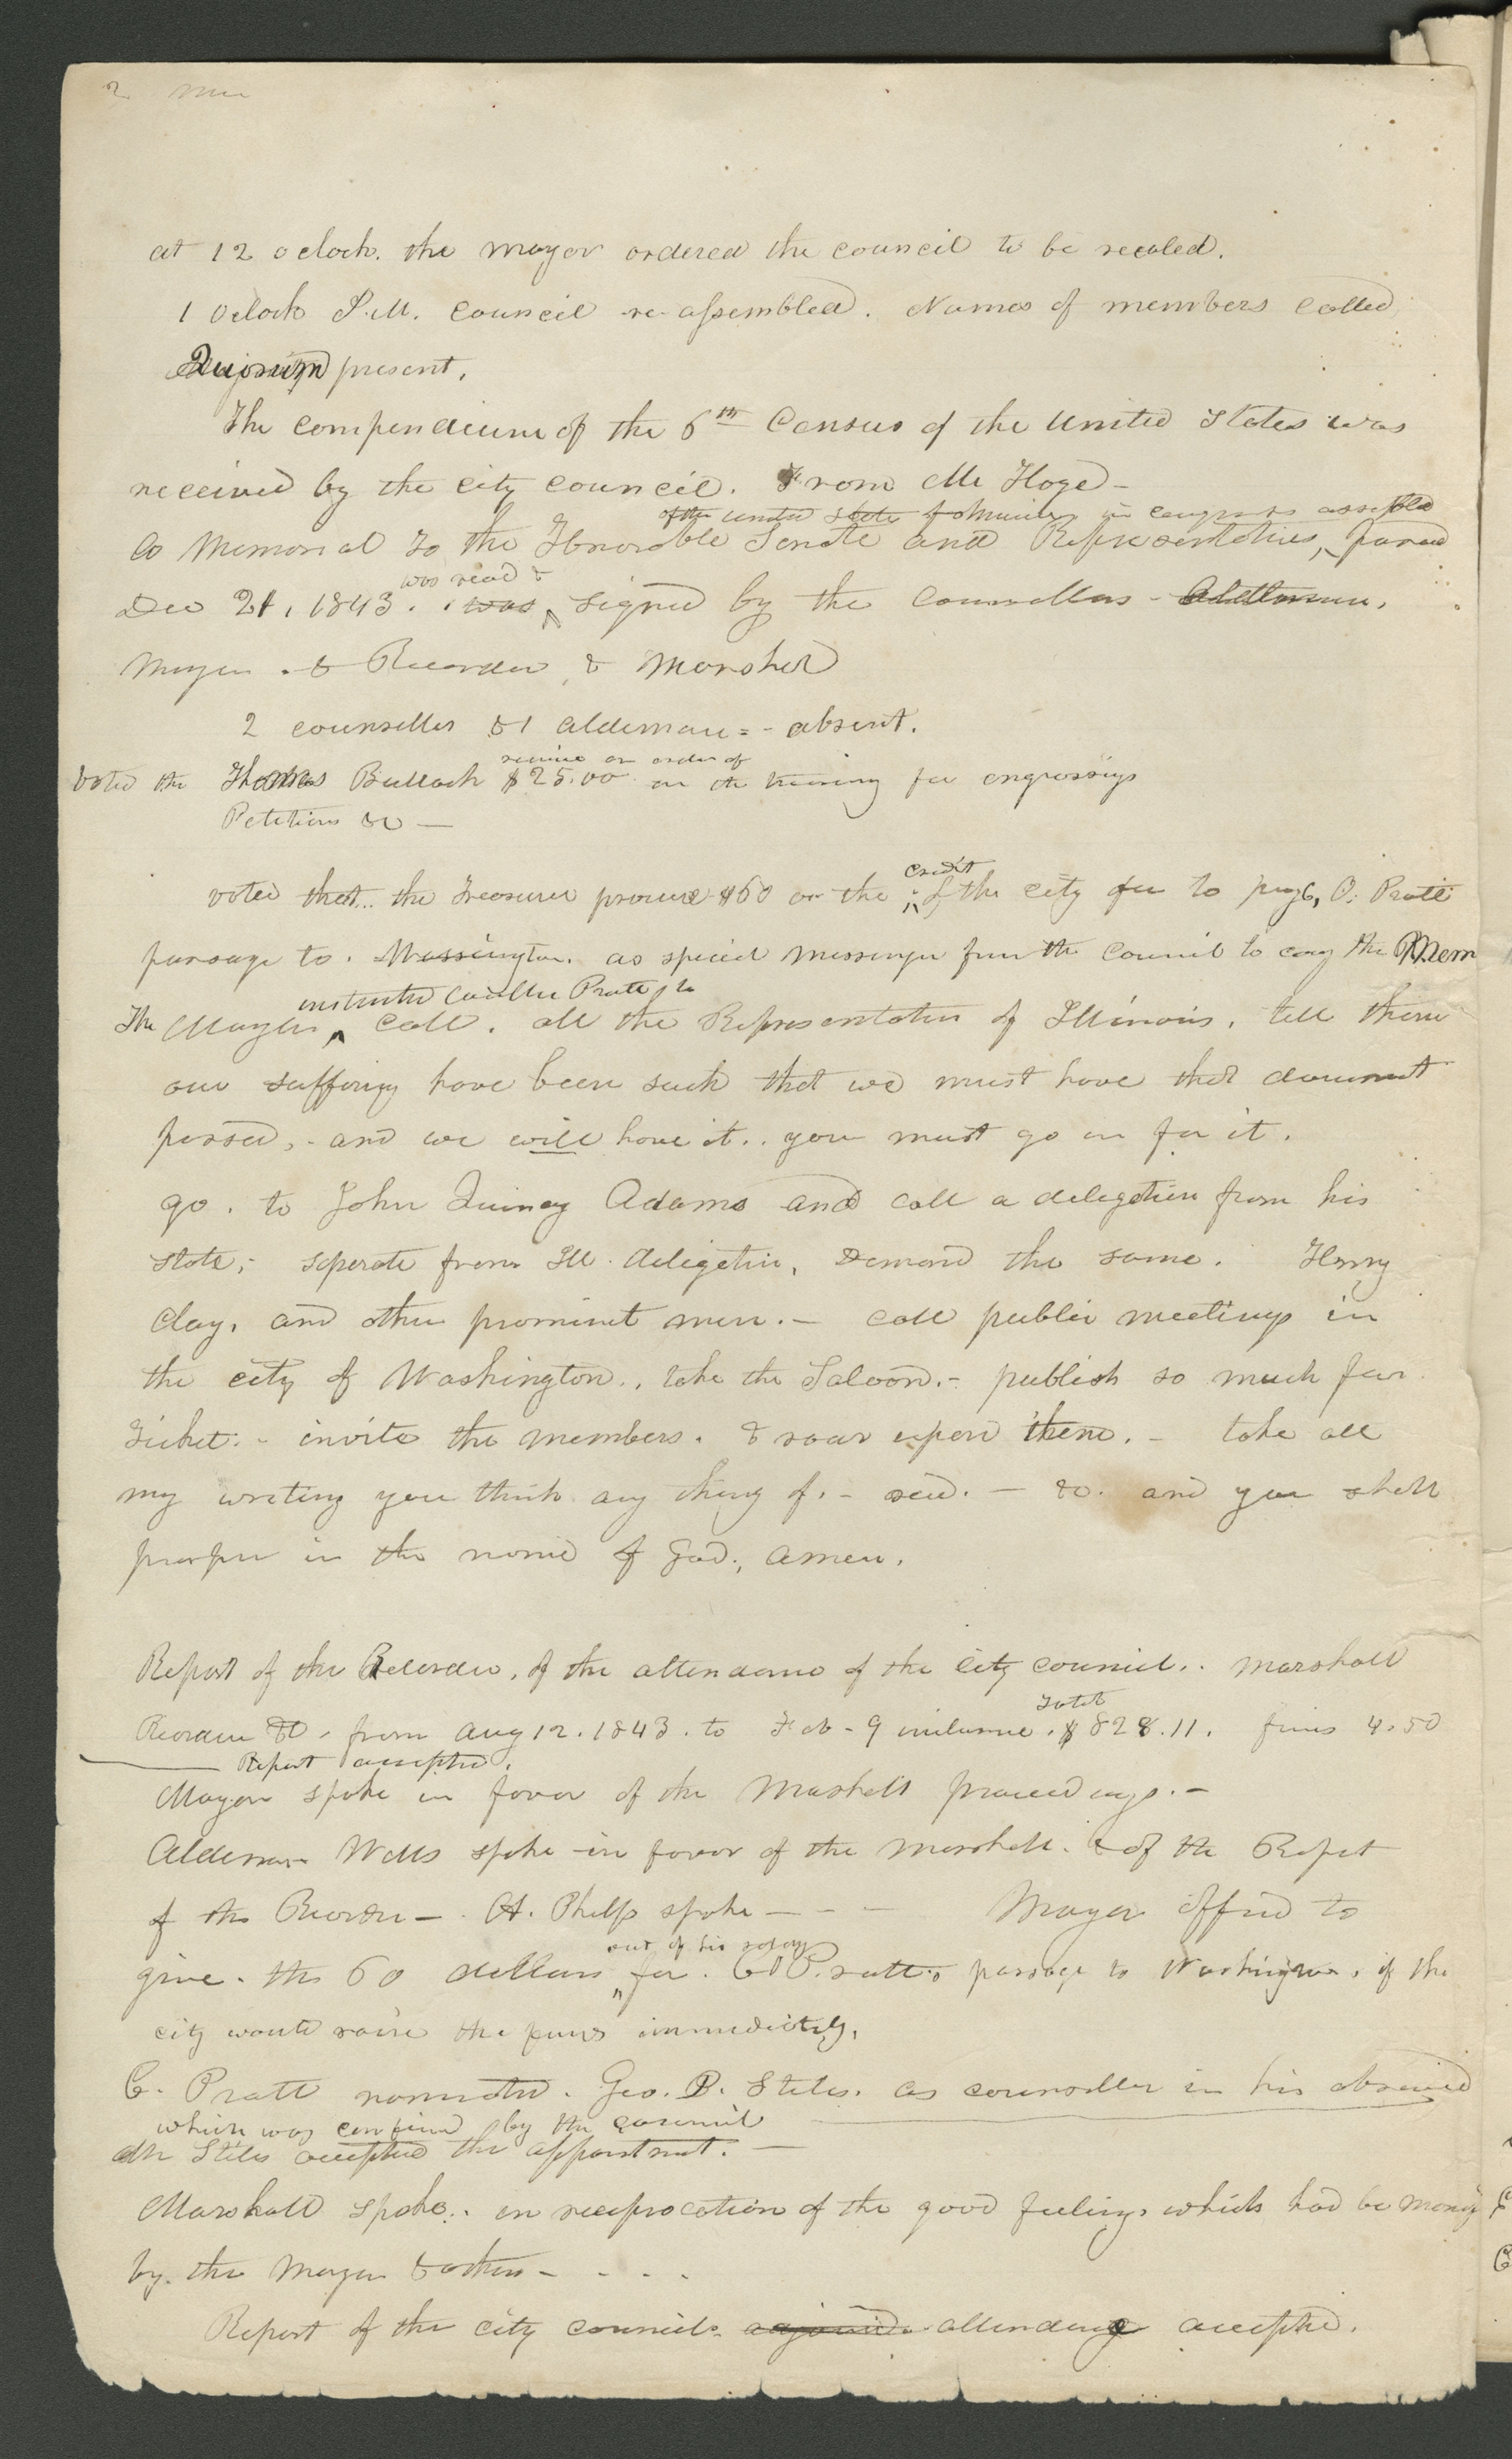 2
at 12 oclock. the mayor ordered the council to be seated.
1 oclock P.M. council re-assembled. Names of members called
Quorum present.
The compendium of the 6th Census of the United States was
received by the city council. From Mr Hoge —
of the United States of America in congress assembled
A Memorial to the Honorable Senate and Representatives, passed
was read &
Dec 21, 1843. was signed by the councillors - Aldermen,
Mayor. & Recorder, & Marshal
2 counsellors & 1 alderman = - absent.
receive an order of
Voted the Thomas Bullock $25.00 on the treasury for engrossing
Petitions &c —
credit
voted that.. the Treasurer procure $60 on the of the city for to pay, O. Pratts
passage to. Washington. as special messenger from the council to carry the Mem
instructed Councillor Pratt, to
The Mayor call. all the Representatives of Illinois, tell them
our suffering have been such that we must have that document
passed, - and we will have it.. you must go in for it.
go. to John Quincy Adams and call a delegation from his
state; seperate from Ill. deligation, Demand the same. Henry
Clay, and other prominent men. - call public meetings in
the city of Washington., take the Saloon.- publish so much for
Ticket. - invite the members. & roar upon them. - take all
my writing you think any thing of. - read. - &c. and you shall
prosper in the name of God, amen.
Report of the Recorder, of the attendance of the city council.. Marshall
Total
Recorder &c, from Aug 12. 1843. to Feb - 9 inclusive. $828.11. fines 4.50
Report accepted.
Mayor spoke in favor of the Marshall proceedings. -
Alderman Wells spoke in favor of the Marshall. & of the Report
of the Recorder -. A. Phelps spoke - - - Mayor offered to
out of his salary
give. the 60 dollars for. O Pratts passage to Washington, if the
city would raise the funds immediately,
C. Pratt nominated. Geo. P. Stiles. as counsellor in his absence
which was confirmed by the council
Mr Stiles accepted the appointment. —
Marshall spoke.. in reciprocation of the good feelings which had be
by. the Mayor & others - - . .
Report of the city councils adjourned attendance accepted.